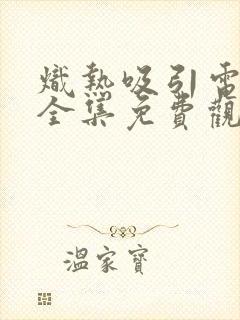 熾熱吸引電
全集免費觀
溫家寶